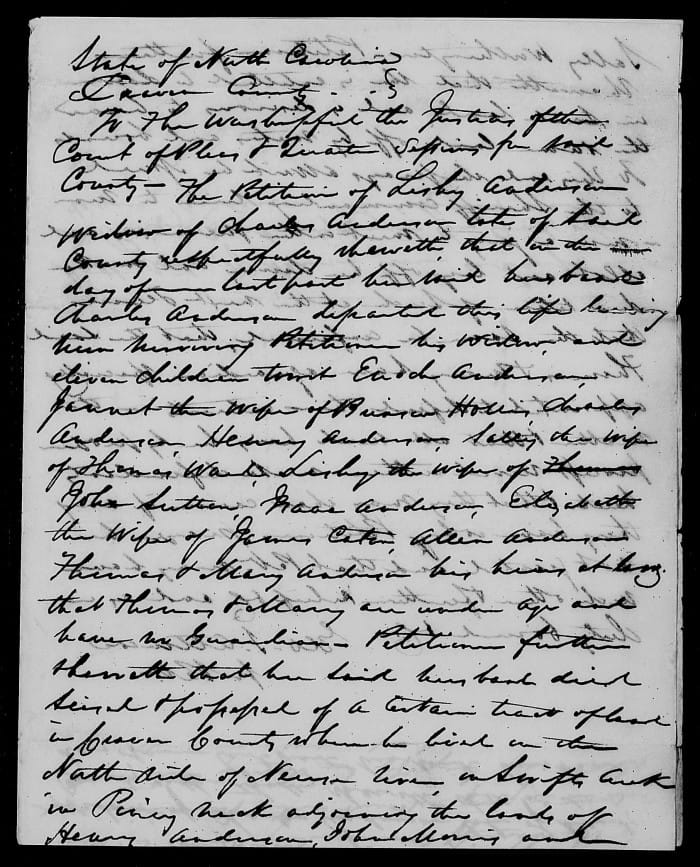 State of North Carolina
Craven County
To The Worshipful the Justices of the
Court of Pleas & Quarter Sessions for said
County — The Petition of Lesby Anderson
Widow of Charles Anderson late of said
County respectfully sheweth, that on the
day of last past her said husband
Charles Anderson departed this life leaving
him surviving Petitioner his Widow, and
eleven children towit Enoch Anderson,
Jannet the wife of Hollis, Charles
Anderson Henry Anderson, Sally the wife
of Thomas Lesby the wife of Thomas
John Sutton, Isaac Anderson, Elizabeth
the Wife of James Allen Anderson
Thomas & Mary Anderson his heirs at law,
that Thomas & Mary are under age and
have no Guardian — Petitioner further
sheweth that her said husband died
seized & possessed of a certain tract of land
in Craven County where he lived on the
North side of Neuse river, on Swifts Creek
in Piney neck adjoining the lands of
Henry Anderson, John Morris and